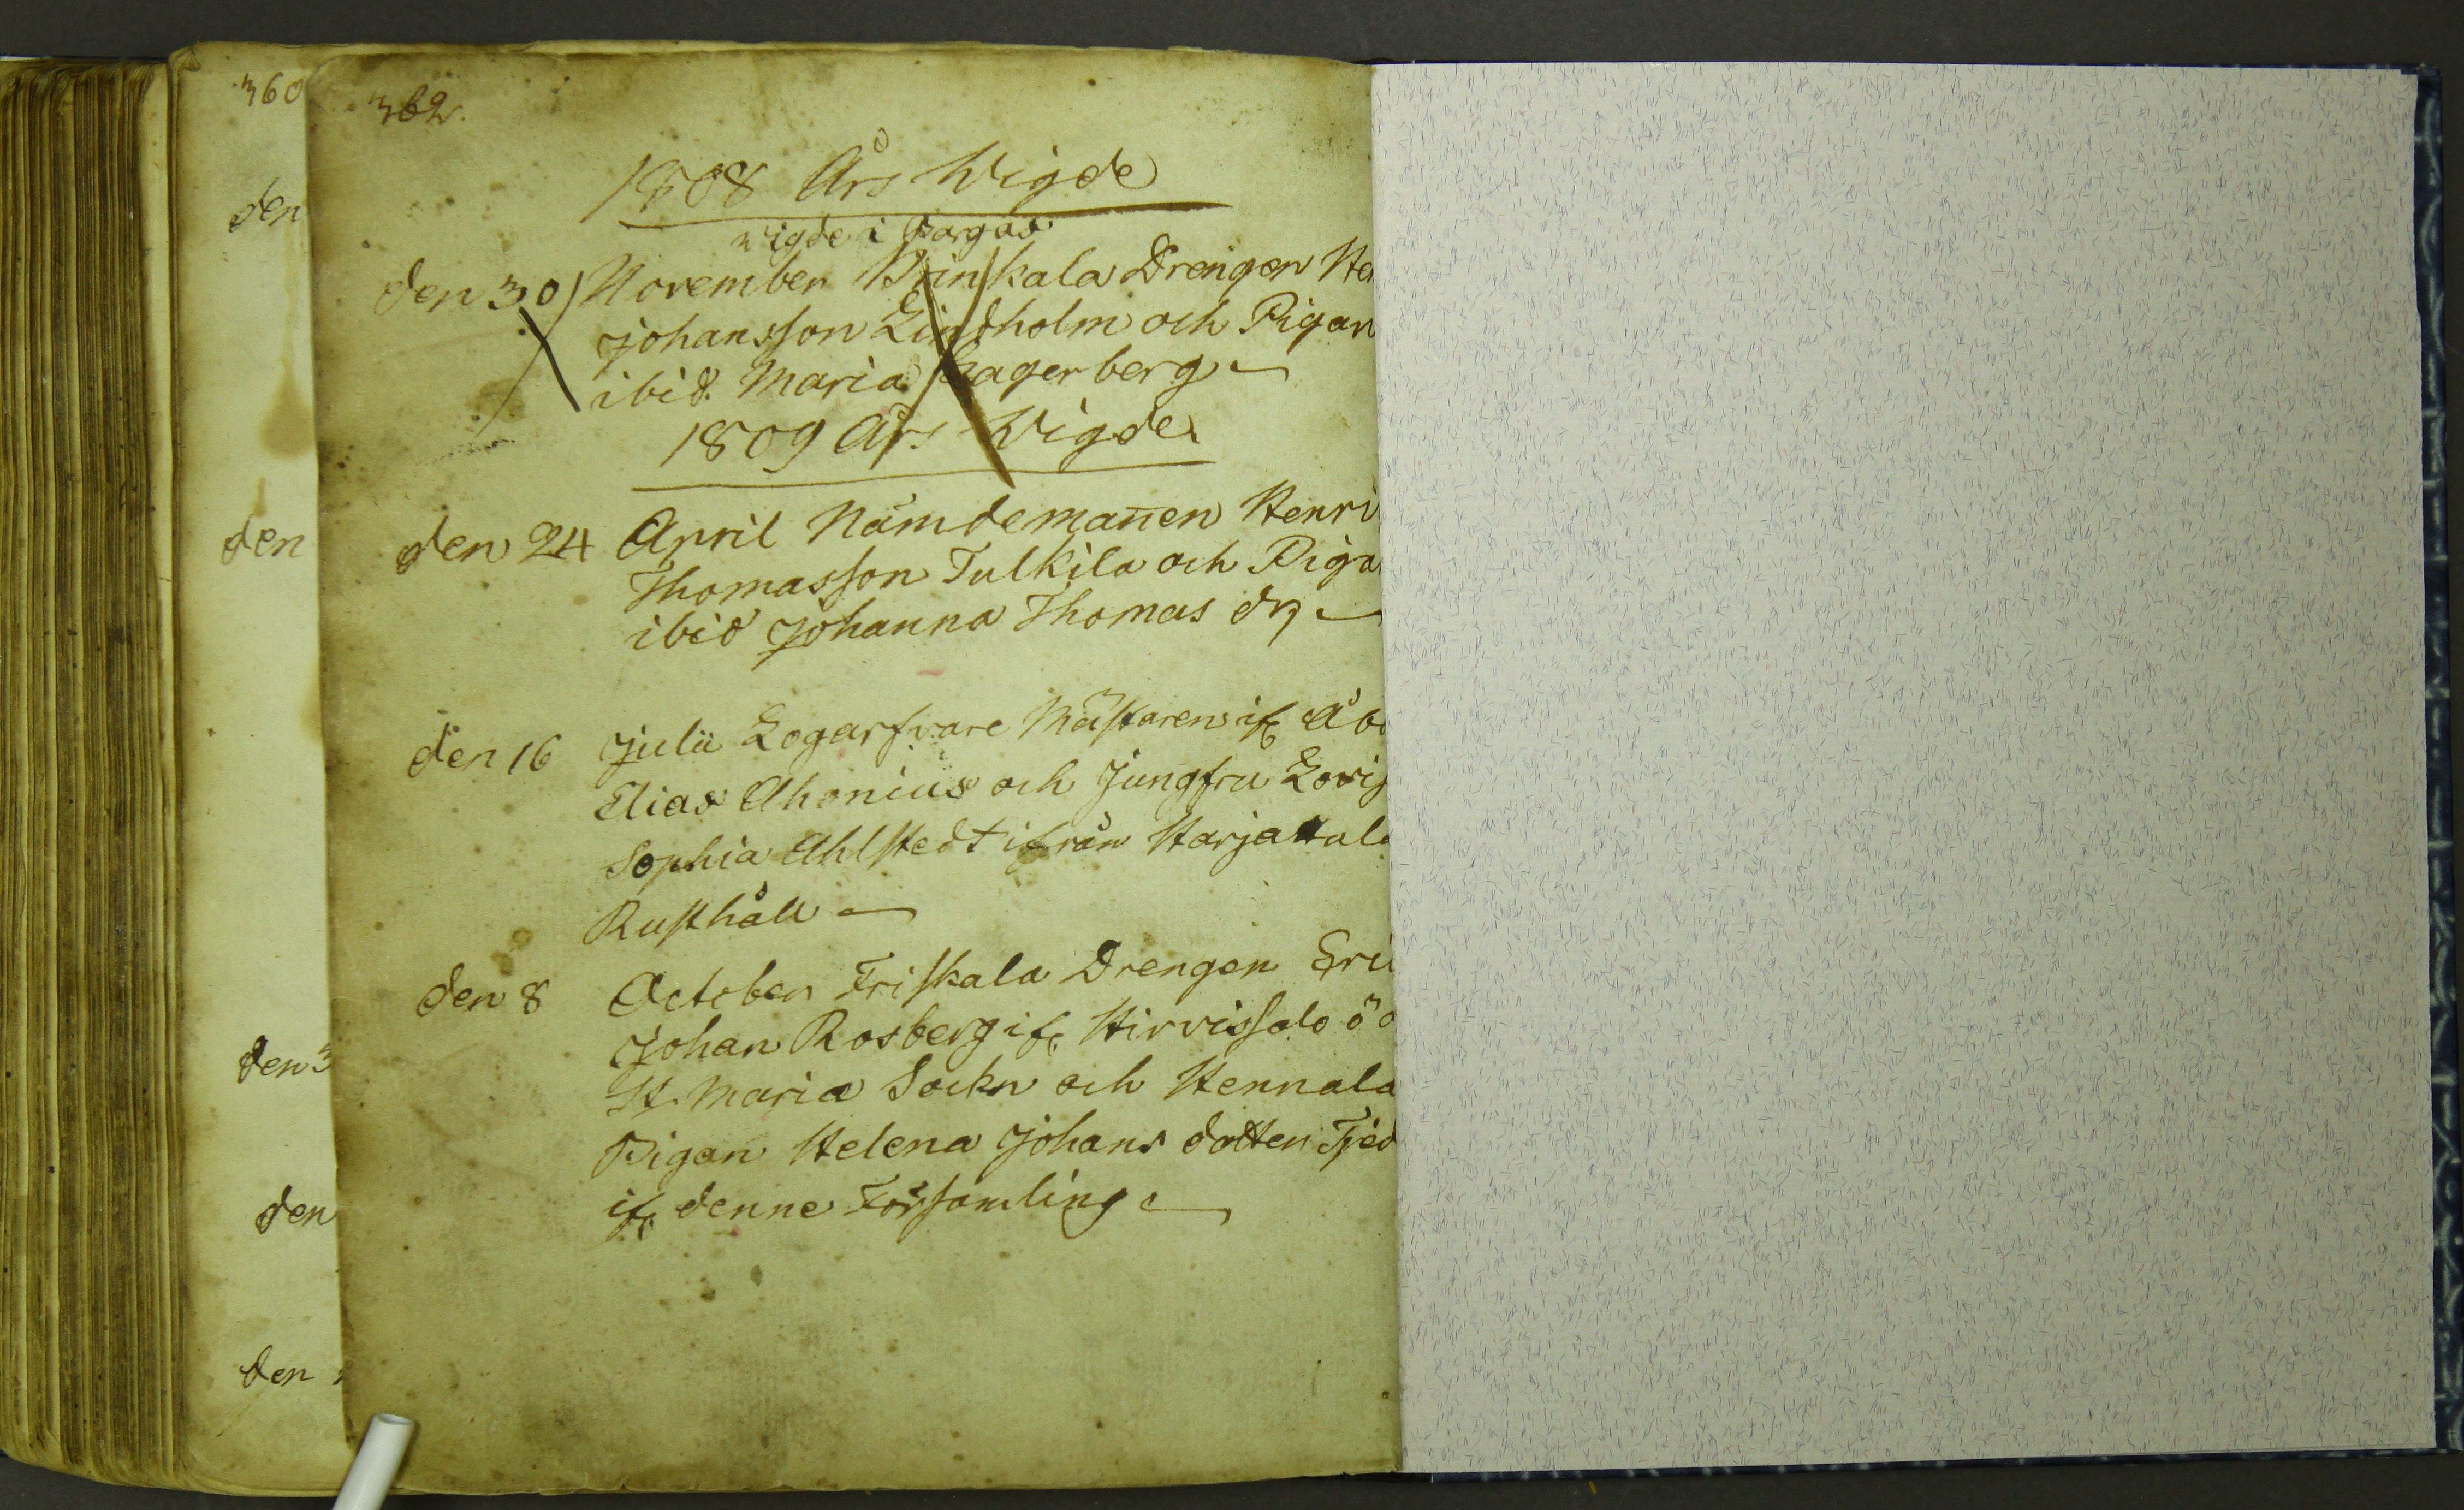 360
den
den
den 3
den
den
362.
1808 Års Wigde
wigde i Pargas
den 30 November Prinkala Drengen He
Johansson Lindholm och Pigan
ibid. Maria Lagerberg
1809 Års Wigde
den 24 April Nämdemañen Henri
Thomasson Tulkila och Piga
ibid Johanna Thomas dr
den 16 Julii Logarfvare Mästaren if Åb
Elias Ahonius och Jungfru Lovis
Sophia Ahlstedt ifrån Harjattula
Rusthåll
den 8 October Friskala Drengen Eri
Johan Rosberg if Hirvissalo ö
St. Maria Sockn och Hennala
Pigan Helena Johans dotter
if denne Församling